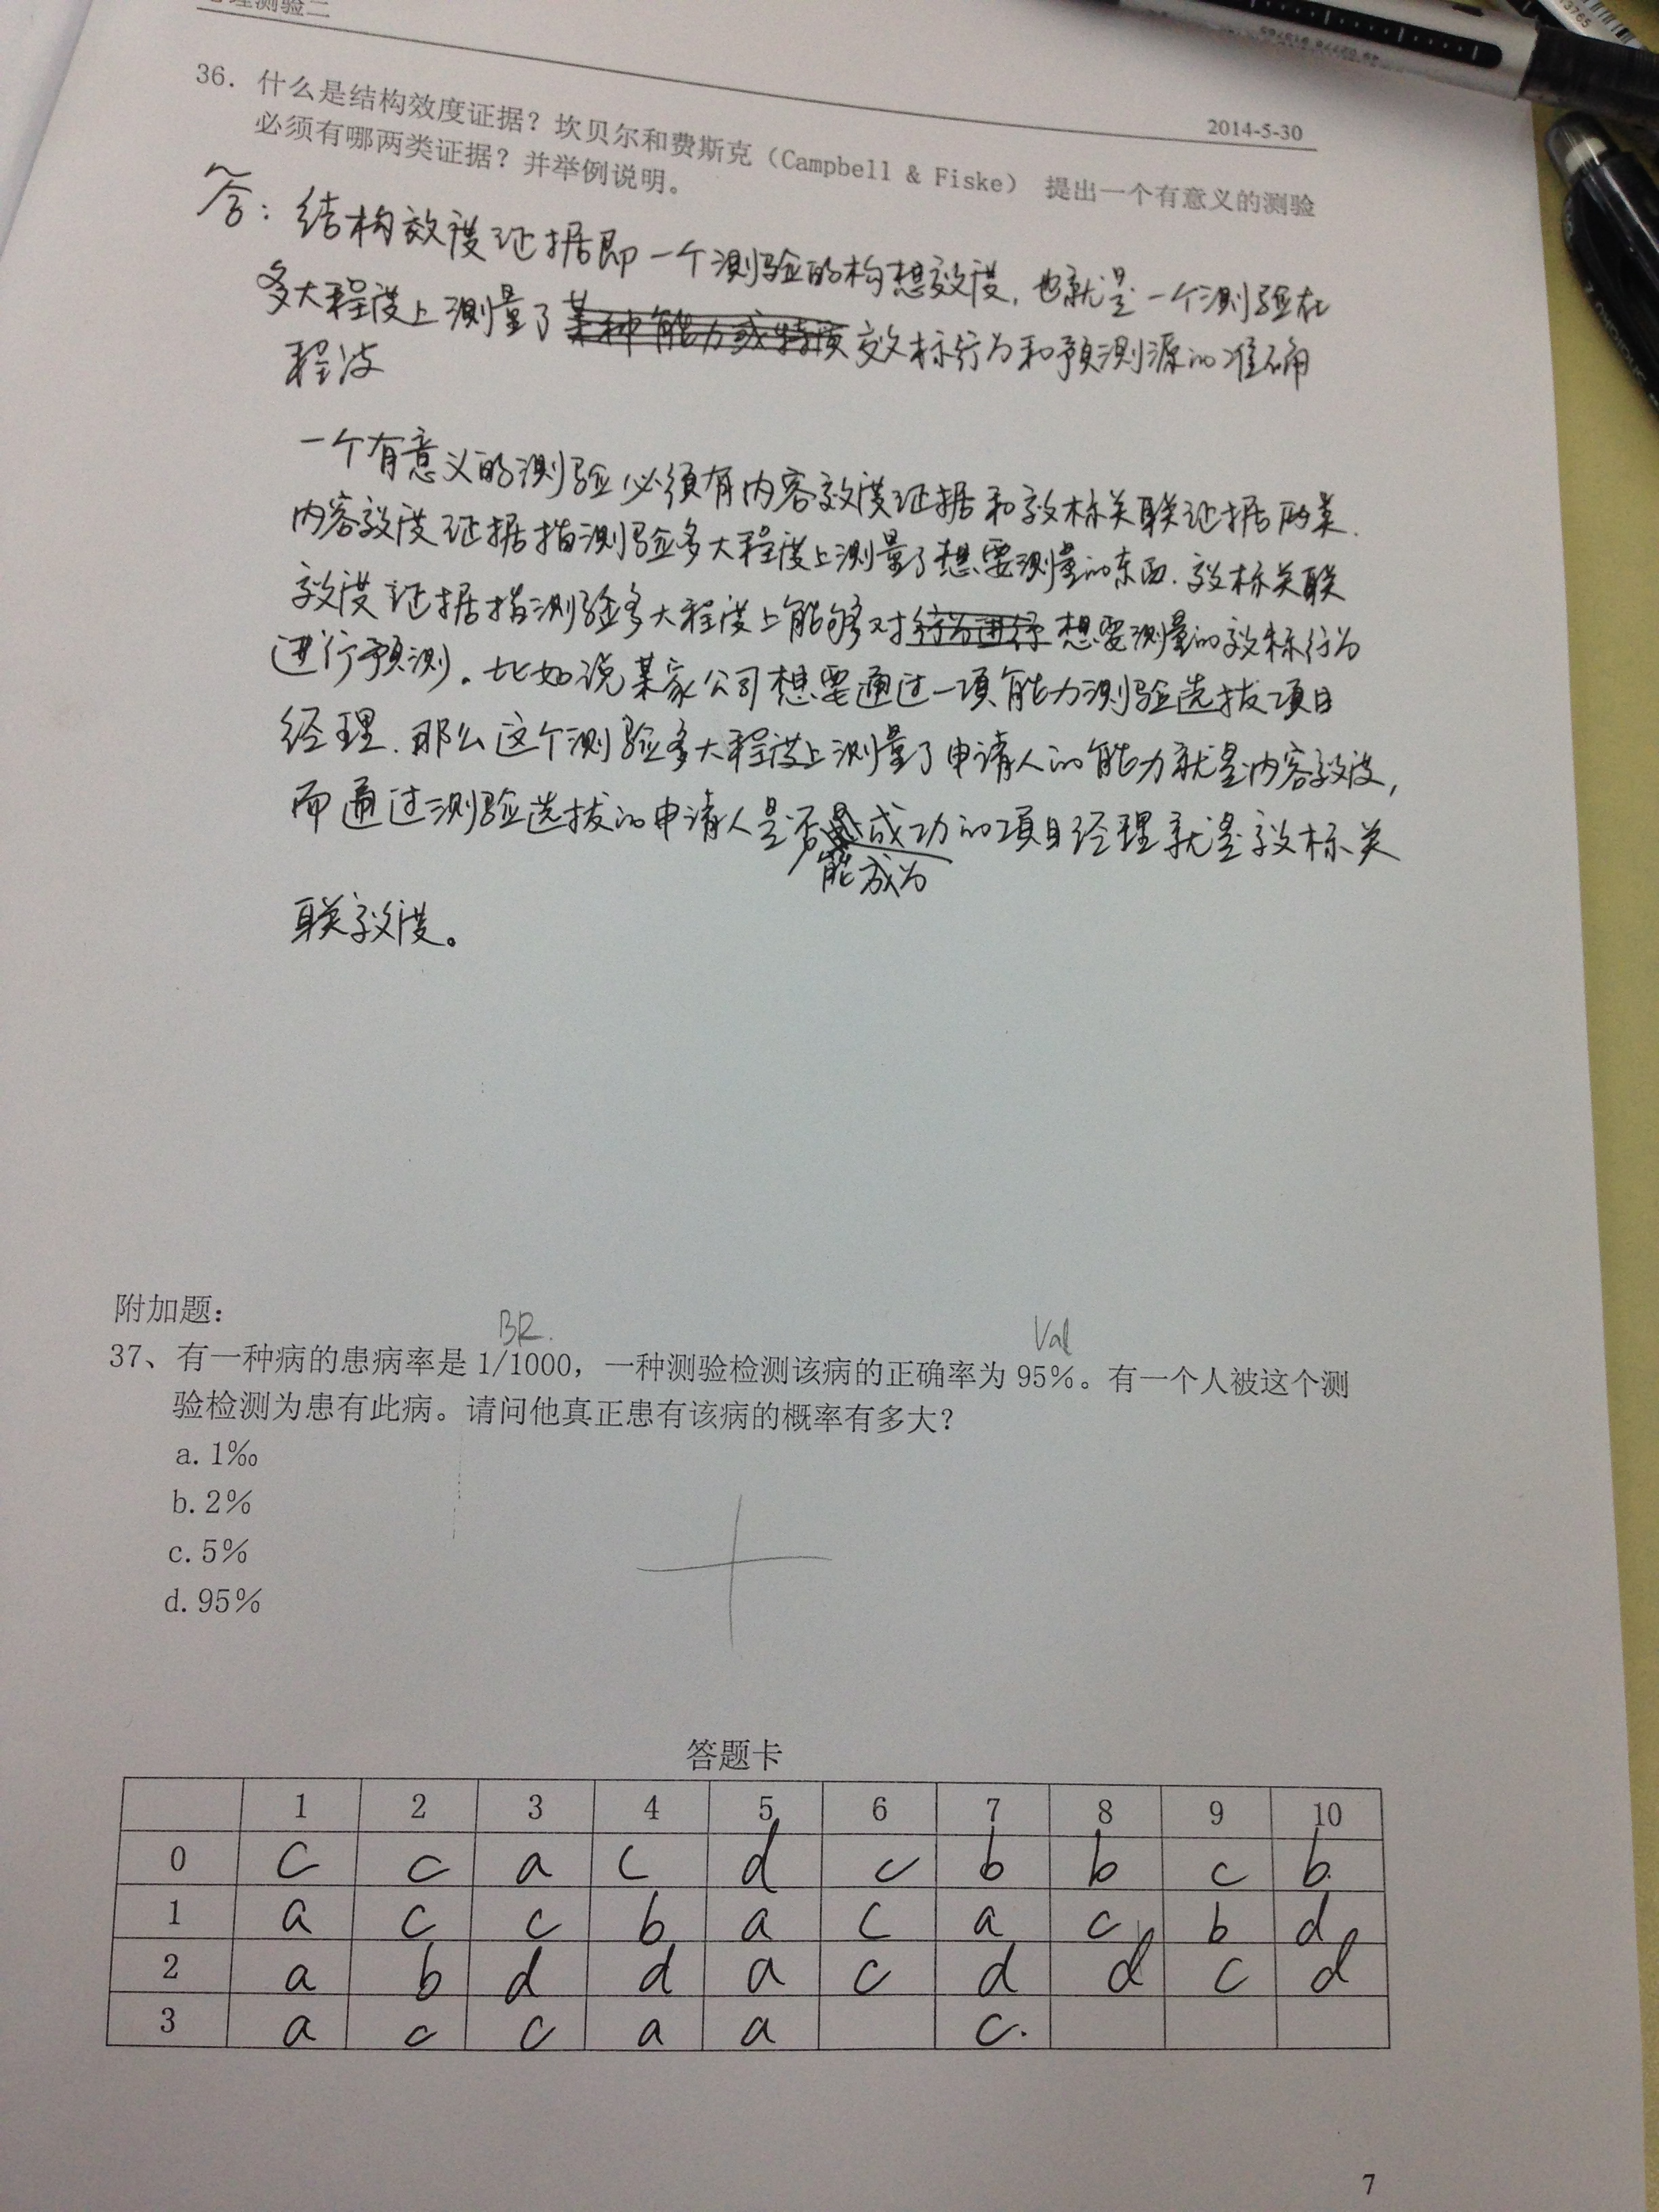 心理测验二
2014-5-30
36. 什么是结构效度证据？坎贝尔和费斯克（Campbell & Fiske） 提出一个有意义的测验
必须有哪两类证据？并举例说明。
答：结构效度证据即一个测验的构想效度，也就是一个测验在
多大程度上测量了某种能力或特质效标行为和预测源的准确
程度
一个有意义的测验必须有内容效度证据和效标关联证据两类.
内容效度证据指测验多大程度上测量了想要测量的东西.效标关联
效度证据指测验多大程度上能够对行为进行想要测量的效标行为
进行预测。比如说某家公司想要通过一项能力测验选拔项目
经理.那么这个测验多大程度上测量了申请人的能力就是内容效度，
而通过测验选拔的申请人是否成功的项目经理就是效标关
能成为
联效度。
附加题：
BR.
Val
37、有一种病的患病率是 1/1000，一种测验检测该病的正确率为 95%。有一个人被这个测
验检测为患有此病。请问他真正患有该病的概率有多大？
a. 1‰
b. 2%
c. 5%
d. 95%
答题卡
1 2 3 4 5 6 7 8 9 10
0 c c a c d c b b c b.
1 a c c b a c a c b d
2 a b d d a c d d c d
3 a c c a a c.
7